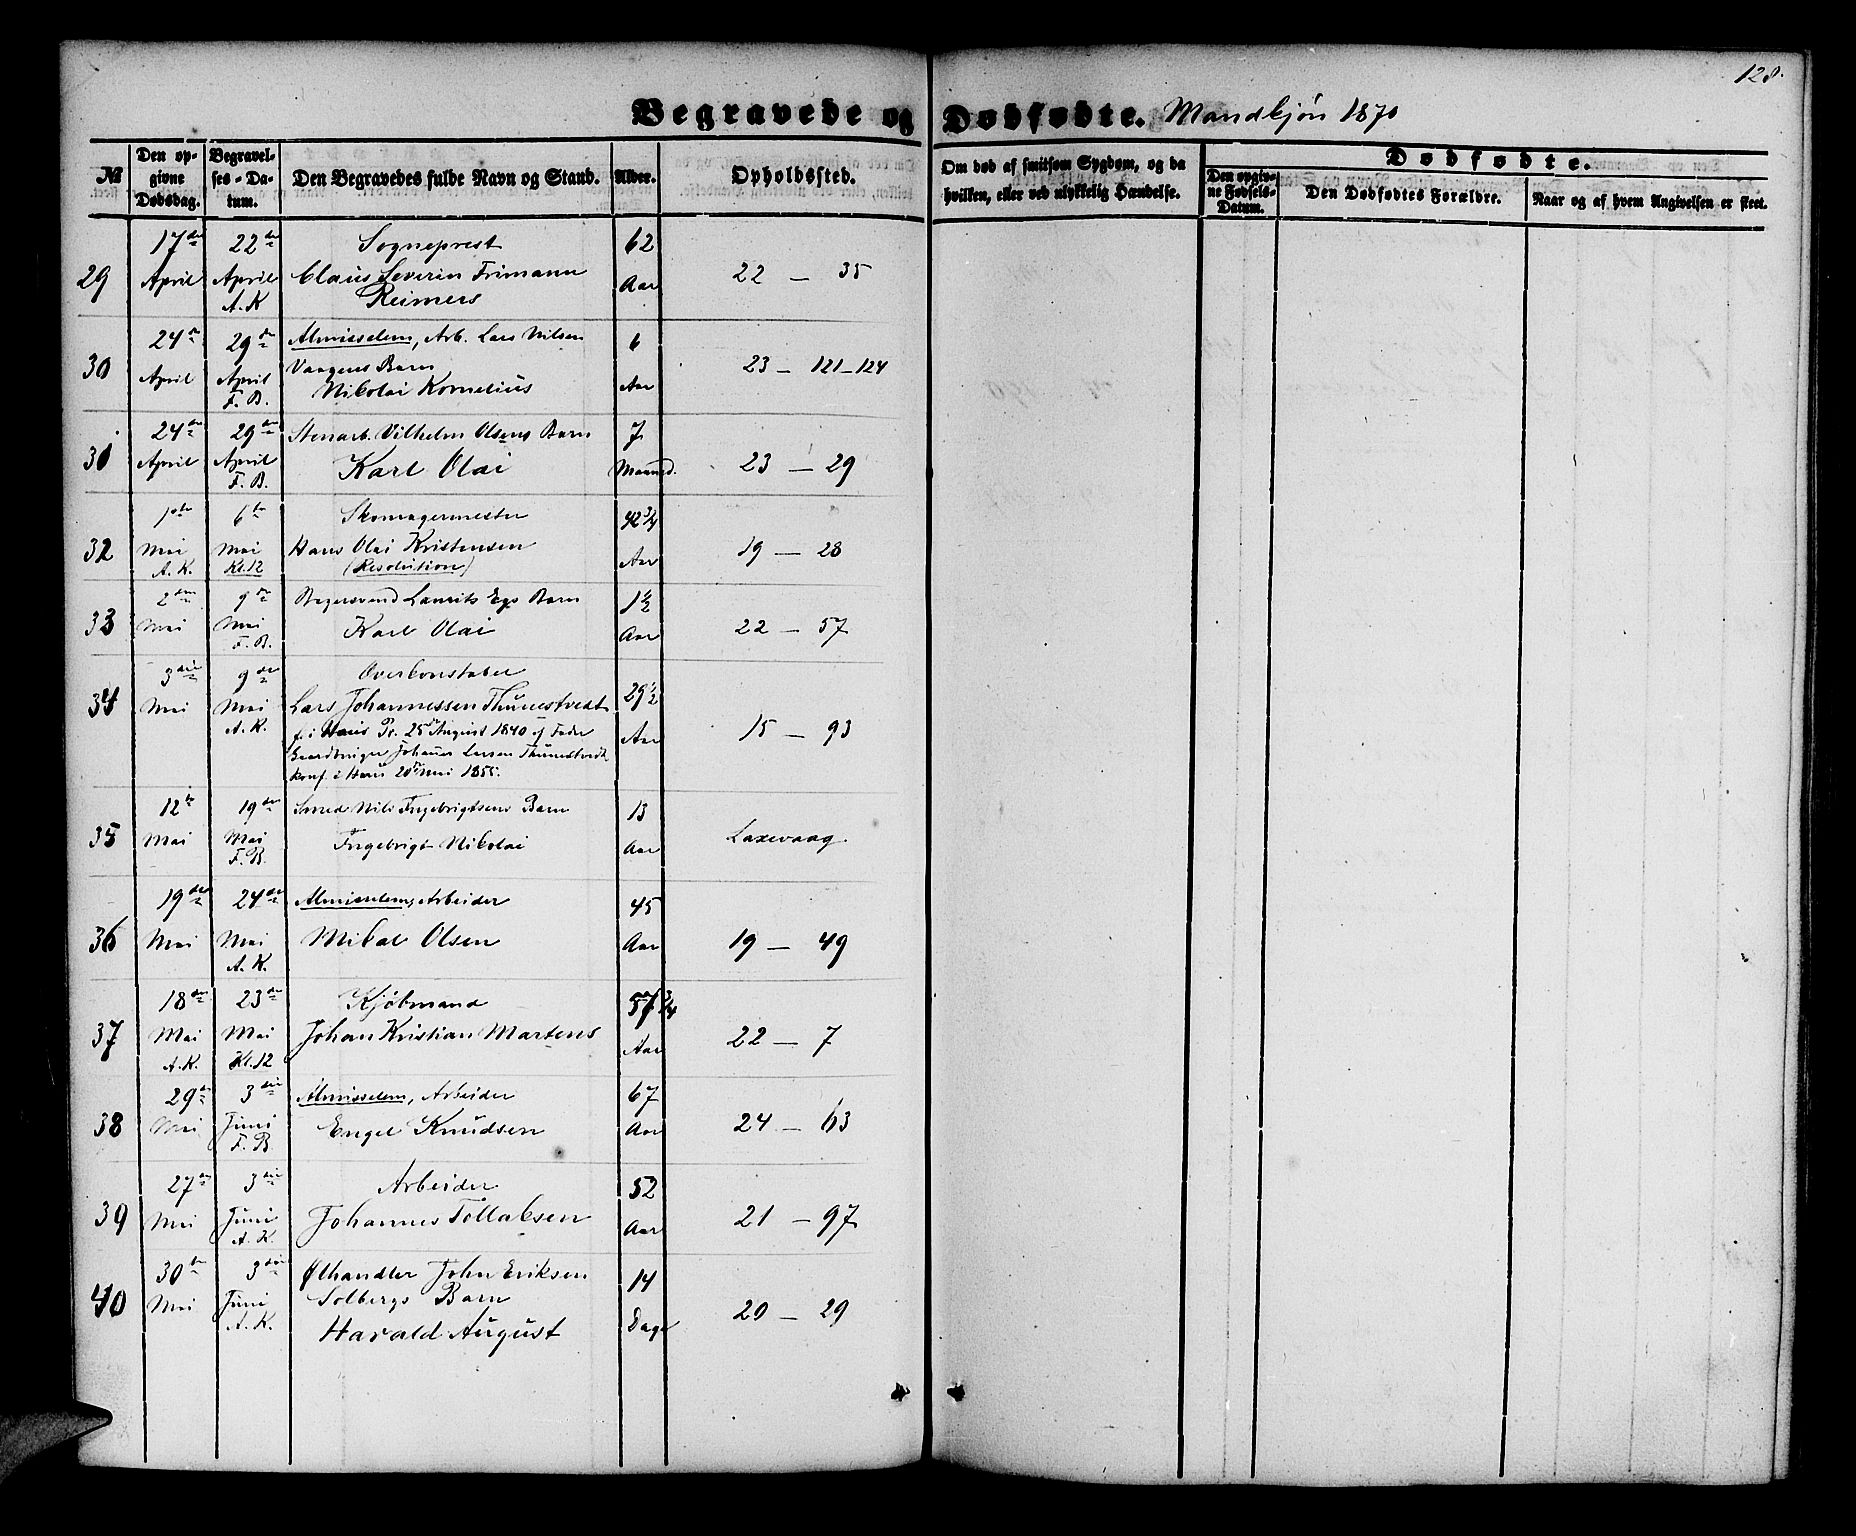 128.
Begravede og Dødfødte. Mandkjøn 1870
№ | Den opgivne Dødsdag. | Begravelses-Datum. | Den Begravedes fulde Navn og Stand. | Alder. | Opholdssted. | Om død af smitsom Sygdom, og da hvilken, eller ved ulykkelig Hændelse. | Dødfødte. | Den opgivne Fødsels-Datum. | Den Dødfødtes Forældre. | Naar og af hvem Angivelsen er skeet.
17de 22de Sogneprest 62
29 April April Claus Severin Frimann Aar 22 — 35
A. K Reimers
24de 29de Almisselem, Arb. Lars Nilsen 6
30 April April Vaagens Barn Aar 23 — 121–124
F. B. Nikolai Kornelius
24de 29de Stenarb. Vilhelm Olsens Barn 7
31 April April Karl Olai Maaned. 23 — 29
F. B.
1ste 6te Skomagermester 42 3/4
32 Mai Mai Hans Olai Kristensen Aar 19 — 28
A. K. Kl. 12 (Resolution)
2den 9de Bagersvend Laurits Egs Barn 1 1/2
33 Mai Mai Karl Olai Aar 22 — 57
F. B.
3die 9de Overkonstabel 29 1/2
34 Mai Mai Lars Johannessen Thunestvedt Aar 15 — 93
A. K. f. i Haus Pr. 25de August 1840 af Fader
Gaardbruger Johannes Larsen Thunestvedt
konf. i Haus 20de Mai 1855.
12te 19de Smed Nils Ingebrigtsens Barn 13
35 Mai Mai Ingebrigt Nikolai Aar Laxevaag.
F. B.
19de 24de Almisselem, Arbeider 45
36 Mai Mai Mikal Olsen Aar 19 — 49
A. K.
18de 23de Kjøbmand 57 3/4
37 Mai Mai Johan Kristian Martens Aar 22 — 7
A. K. Kl. 12
29de 3die Almisselem, Arbeider 67
38 Mai Juni Engel Knudsen Aar 24 — 63
F. B
27de 3die Arbeider 52
39 Mai Juni Johannes Tollaksen Aar 21 — 97
A. K.
30te 3die Ølhandler John Eriksen 14
40 Mai Juni Solbergs Barn Dage 20 — 29
A. K. Harald August